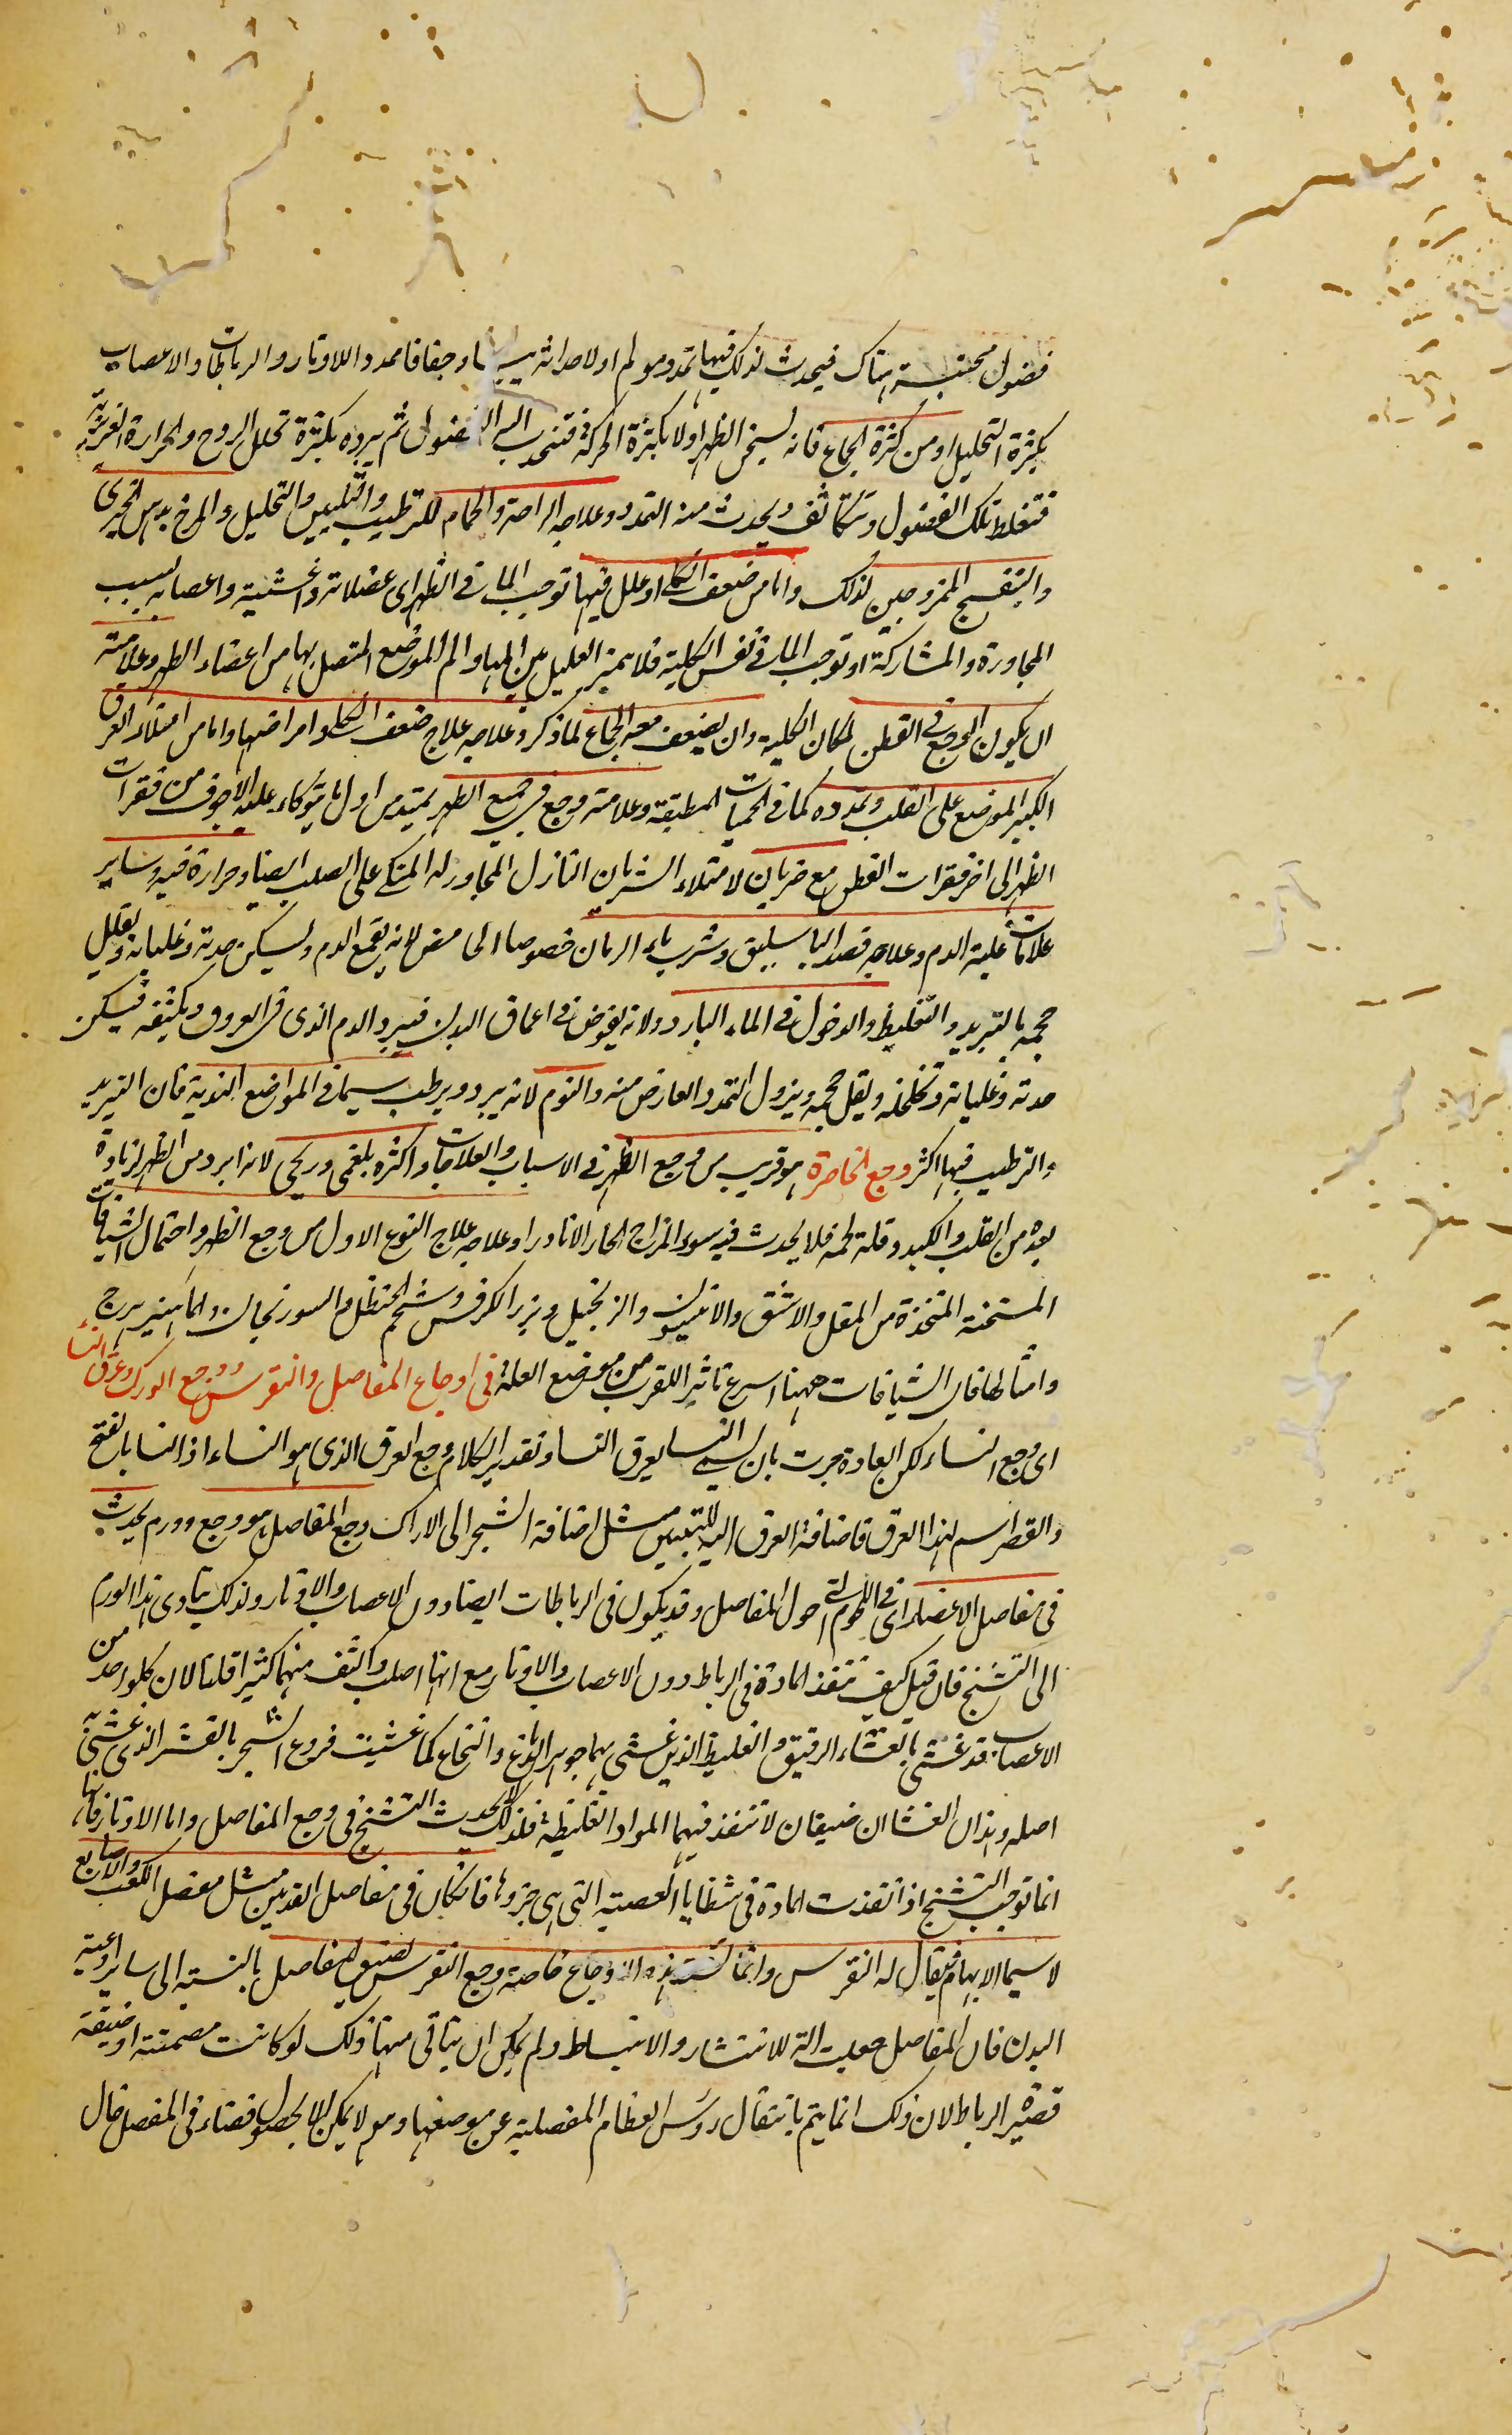 فضول محتبسة هناك فيحدث لذلك فيها تمدد مولم او لاحداثه يبسا و جفافا ممددا للاوتار و الرباطات و الاعصاب
بكثرة التحليل او من كثرة الجماع فانه يسخن الظهر اولا بكثرة الحركة فتنجذب اليه الفضول ثم يبرده بكثرة تحلل الروح و الحرارة الغريزية
فتغلظ تلك الفضول و تتكاثف و يحدث منه التمدد و علاجه الراحة و الحمام للترطيب و التليين و التحليل و المرخ بدهن الخيرى
و البنفسج الممزوجين لذلك و اما من ضعف الكلى او علل فيها توجب الما فى الظهر اى عضلاته و اغشيته و اعصابه بسبب
المجاورة و المشاركة او توجب الما فى نفس الكلية فلا يميز العليل بين المها و الم الموضع المتصل بها من اعضاء الظهر و علامته
ان يكون الوجع فى القطن لمكان الكلية و ان يضعف معه الجماع لما ذكر و علاجه علاج ضعف الكلى و امراضها و اما من امتلاء العرق
الكبير الموضع على الصلب و تمدده كما فى الحميات المطبقة و علامته وجع فى جميع الظهر يمتد من اول ما يتوكاء عليه الاجوف من فقرات
الظهر الى اخر فقرات القطن مع ضربان لامتلاء الشريان النازل المجاور له المتكى على الصلب ايضا و حرارة فيه و ساير
علامات غلبة الدم و علاجه فصد الباسليق و شرب ماء الرمان خصوصا الحامض لانه يقمع الدم و يسكن حدته و غليانه و يقلل
حجمه بالتبريد و التغليظ و الدخول فى الماء البارد و لانه يغوص فى اعماق البدن فيبرد الدم الذى فى العروق و يكثفه فيسكن
حدته و غليانه و تخلخله و يقل حجمه و يزول التمدد العارض منه و النوم لانه يبرد و يرطب سيما فى المواضع الندية فان التبريد
و الترطيب فيها اكثر وجع الخاصرة هو قريب من وجع الظهر فى الاسباب و العلاجات و اكثره بلغمى و ريحى لانه ابرد من الظهر لزيادة
بعده من القلب و الكبد و قلة لحمه فلا يحدث فيه سوء المزاج الحار الا نادرا و علاجه علاج النوع الاول من وجع الظهر و احتمال الشيافات
المسخنة المتخذة من المقل و الاشق و الانيسون و الزنجبيل و بزر الكرفس و شحم الحنظل و السورنجان و الماهيزهرج
و امثالها فان الشيافات ههنا اسرع تاثيرا للقرب من موضع العلة فى اوجاع المفاصل و النقرس و وجع الورك و عرق النسا
اى وجع النساء لكن العادة جرت بان يسمى النسا بعرق النسا و تقدير الكلام وجع العرق الذى هو النساء اذ النسا بالفتح
و القصر اسم لهذا العرق فاضافة العرق اليه للتبيين مثل اضافة الشجر الى الاراك وجع المفاصل هو وجع و ورم يحدث
فى مفاصل الاعضاء اى فى اللحوم التى حول المفاصل و قد يكون فى الرباطات ايضا دون الاعصاب و الاوتار و لذلك يتادى هذا الورم
الى التشنج فان قيل كيف تنفذ المادة فى الرباط دون الاعصاب و الاوتار مع انها اصلب و اكثف منهما كثيرا قلنا لان كلواحد من
الاعصاب قد غشى بالغشاء الرقيق و الغليظ الذين غشى بهما جوهر الدماغ و النخاع كما غشيت فروع الشجر بالقشر الذى غشى به
اصله و هذان الغشاان ضيقان لا تنفذ فيهما المواد الغليظة فلذلك لا يحدث التشنج فى وجع المفاصل و اما الاوتار فانها
انما توجب التشنج اذا نفذت المادة فى شظايا العصبية التى هى جزوها فان كان فى مفاصل القدمين مثل مفصل الكعب و الاصابع
لا سيما الابهام فيقال له النقرس و انما تشتد هذه الاوجاع خاصة وجع النقرس لضيق المفاصل بالنسبة الى ساير اوعية
البدن فان المفاصل جعلت الة للانتشار و الانبساط و لم يكن ان يتاتى منها ذلك لو كانت مصمتة او ضيقة
قصيرة الرباط لان ذلك انما يتم بانتقال روس العظام المفصلية عن موضعها و هو لا يمكن الا بحصول فضاء فى المفصل خال